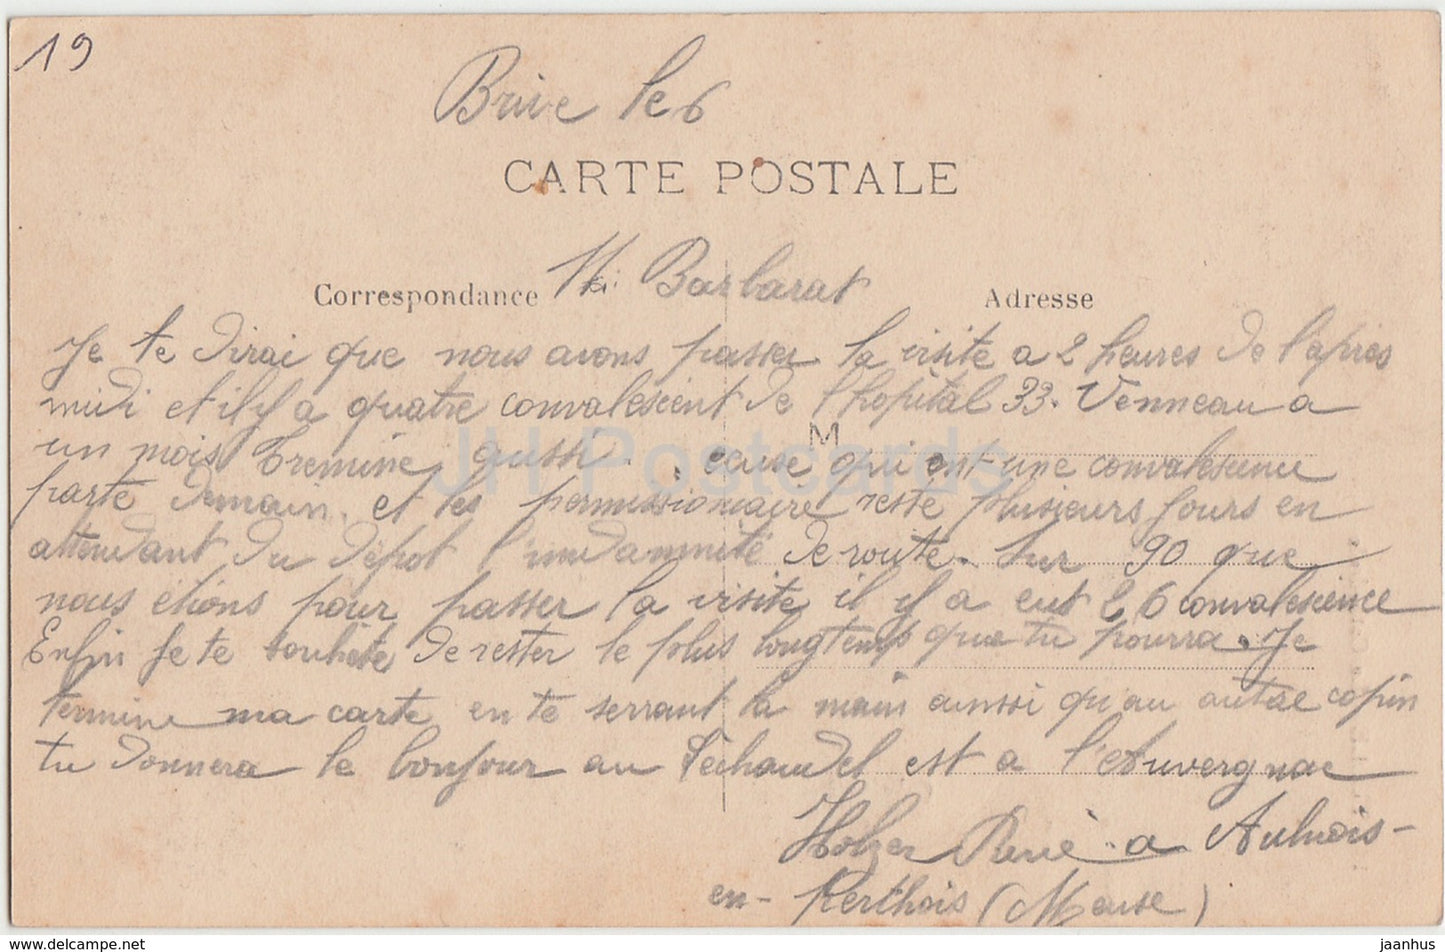 19
Brive le 6
CARTE POSTALE
Correspondance
Barbarat
Adresse
Je te dirai que nous avons passer la visite a 2 heures de l'apres
midi et il y a quatre convalescent de l'hopital 33. Venneau a
un mois tremine aussi. cause qui ont une convalescence
parte demain. et les permissionaire reste plusieurs jours en
attendant du dépot l'indamnité de route. Sur 90 que
nous étions pour passer la visite il y a eut 26 convalescence
Enfin je te souhete de rester le plus longtemps que tu pourra. Je
termine ma carte en te serrant la main aussi qu'au autre copin
tu donnera le bonjour au est a l'Auvergnac
Holzer René a Aulnois-
en-Perthois (Meuse)
JH Postcards
M
akpool.de
jaanhus